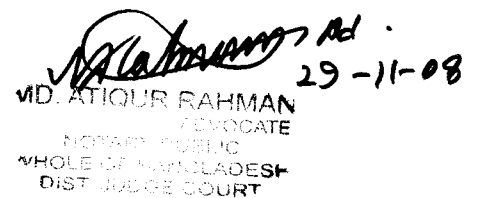 Ad.
29-11-08
MD. ATIQUR RAHMAN
ADVOCATE
NOTARY PUBLIC
WHOLE OF BANGLADESH
DIST. JUDGE COURT